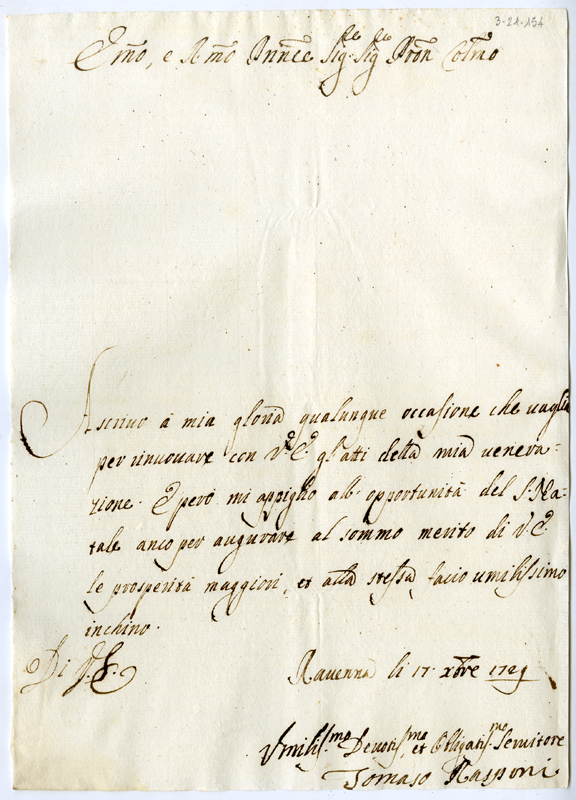 3-21-154
Emo, e Rmo Prnñce Sig.re Sig.re Pron Colmo
Ascrivo à mia gloria qualunque occasione che vaglia
per rinuovare con V.E. gl'atti della mia venera=
zione. E però mi appiglio all'opportunità del S. Na=
tale anco per augurare al sommo merito di V.E.
le prosperità maggiori, et alla stessa facio umilissimo
inchino.
Di V.E.
Ravenna li 17. xbre 1729
Vmilis.mo Devotis.mo et Obligatis.mo Servitore
Tomaso Rasponi